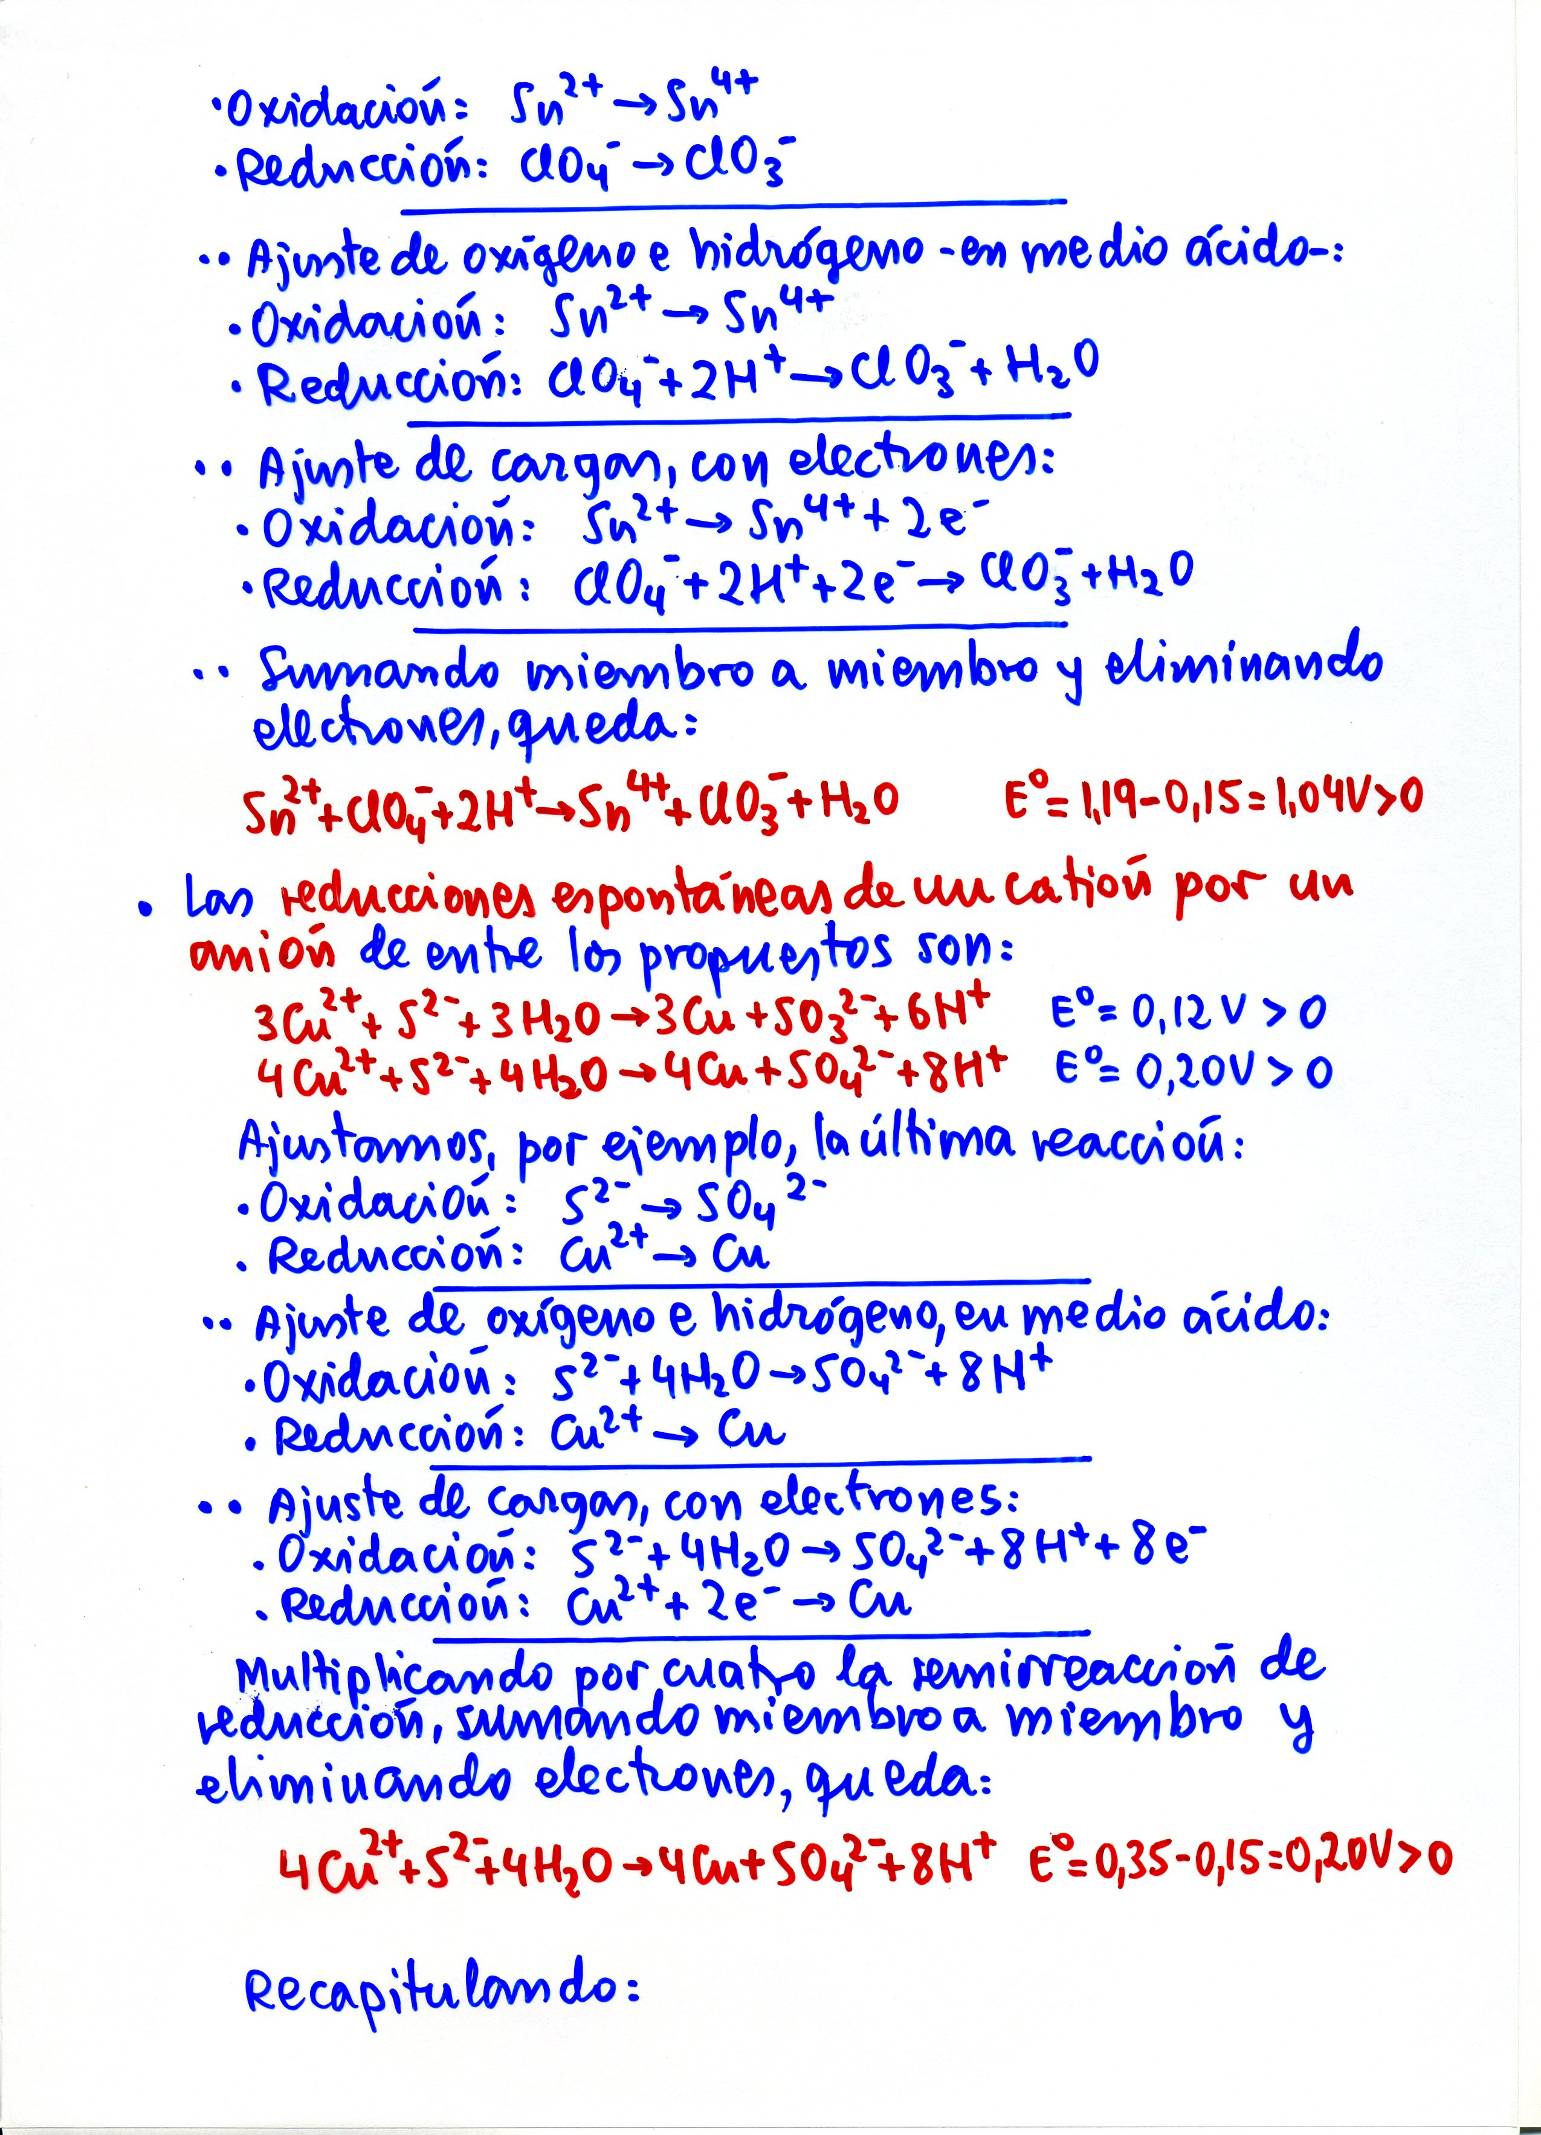 ·Oxidación: Sn²⁺→Sn⁴⁺
·Reducción: ClO₄⁻→ClO₃⁻
·· Ajuste de oxígeno e hidrógeno -en medio ácido-:
·Oxidación: Sn²⁺→Sn⁴⁺
·Reducción: ClO₄⁻+2H⁺→ClO₃⁻+H₂O
·· Ajuste de cargas, con electrones:
·Oxidación: Sn²⁺→Sn⁴⁺+2e⁻
·Reducción: ClO₄⁻+2H⁺+2e⁻→ClO₃⁻+H₂O
·· Sumando miembro a miembro y eliminando
electrones, queda:
Sn²⁺+ClO₄⁻+2H⁺→Sn⁴⁺+ClO₃⁻+H₂O E⁰=1,19-0,15=1,04V>0
· Las reducciones espontáneas de un catión por un
anión de entre los propuestos son:
3Cu²⁺+S²⁻+3H₂O→3Cu+SO₃²⁻+6H⁺ E⁰=0,12V>0
4Cu²⁺+S²⁻+4H₂O→4Cu+SO₄²⁻+8H⁺ E⁰=0,20V>0
Ajustamos, por ejemplo, la última reacción:
·Oxidación: S²⁻→SO₄²⁻
·Reducción: Cu²⁺→Cu
·· Ajuste de oxígeno e hidrógeno, en medio ácido:
·Oxidación: S²⁻+4H₂O→SO₄²⁻+8H⁺
·Reducción: Cu²⁺→Cu
·· Ajuste de cargas, con electrones:
·Oxidación: S²⁻+4H₂O→SO₄²⁻+8H⁺+8e⁻
·Reducción: Cu²⁺+2e⁻→Cu
Multiplicando por cuatro la semirreacción de
reducción, sumando miembro a miembro y
eliminando electrones, queda:
4Cu²⁺+S²⁻+4H₂O→4Cu+SO₄²⁻+8H⁺ E⁰=0,35-0,15=0,20V>0
Recapitulando: